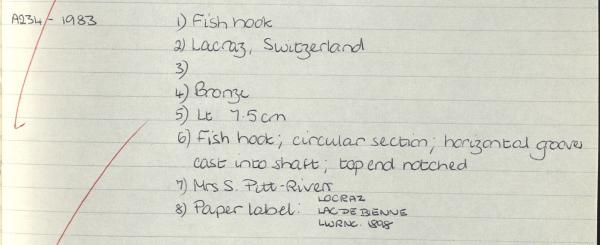 A234 - 1983
1) Fish hook
2) Lacraz, Switzerland
3)
4) Bronze
5) Lt 7.5cm
6) Fish hook; circular section; horizontal grooves
cast into shaft; top end notched
7) Mrs S. Pitt-Rivers
8) Paper label: LOCRAZ
LAC DE BIENNE
LWRNC. 1898